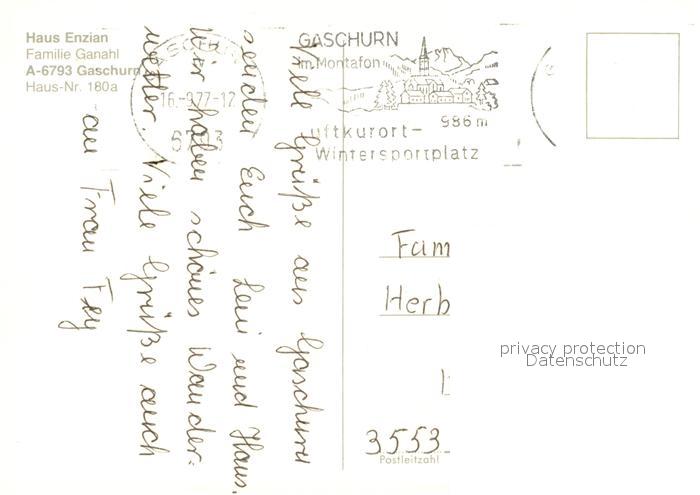 Haus Enzian
Familie Ganahl
A-6793 Gaschurn
Haus-Nr. 180a
16.-9.77-12
6793
GASCHURN
im Montafon
986m
Luftkurort-
Wintersportplatz
Viele Grüße aus Gaschurn
senden Euch Leni und Hans.
Wir haben schönes Wander-
wetter. Viele Grüße auch
an Frau Fey
Fam
Herb
privacy protection
Datenschutz
3553
Postleitzahl